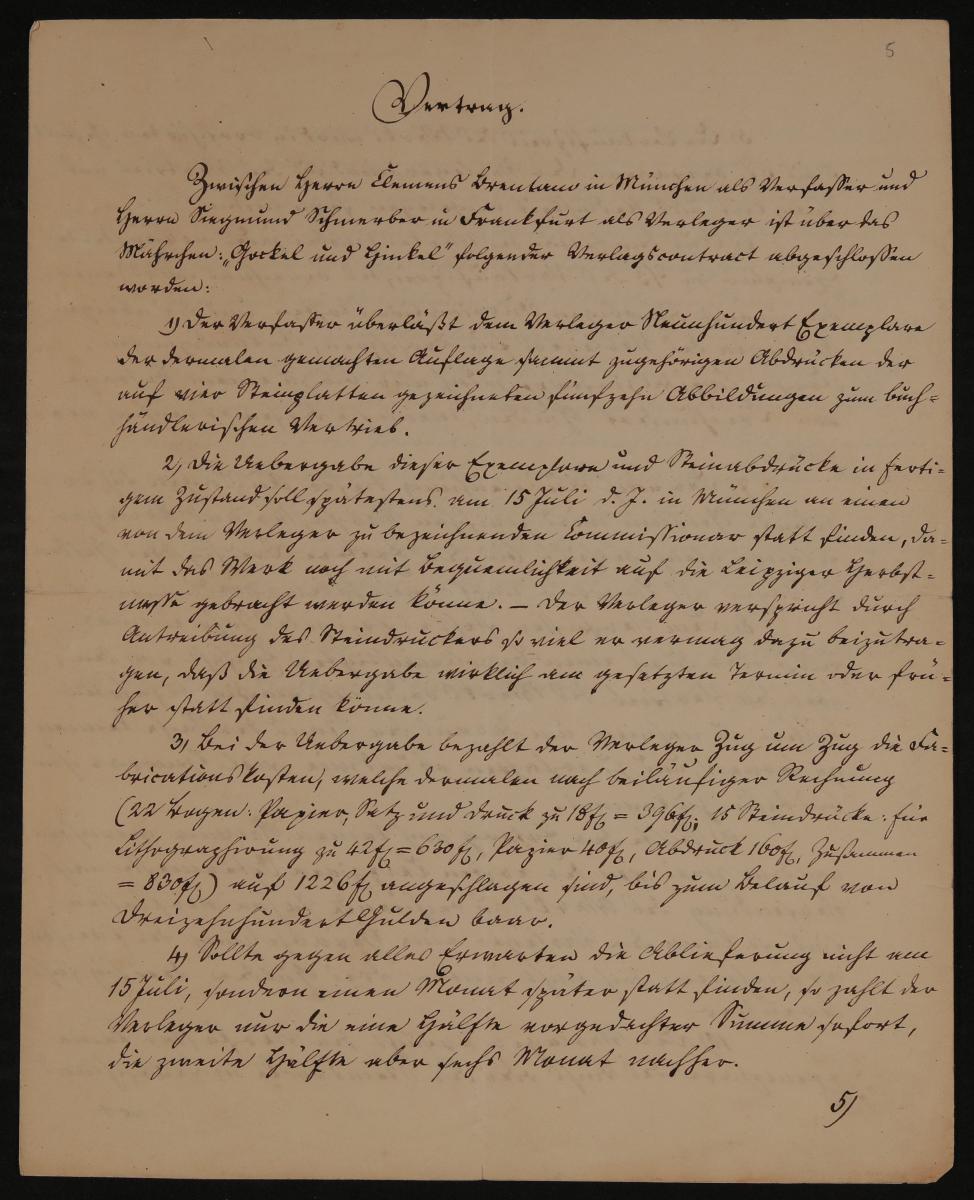 5
Vertrag.
Zwischen Herrn Clemens Brentano in München als Verfasser und
Herrn Siegmund Schmerber in Frankfurt als Verleger ist über das
Mährchen: „Gockel und Hinkel" folgender Verlagscontract abgeschlossen
worden:
1) Der Verfasser überläßt dem Verleger Neunhundert Exemplare
der dermalen gemachten Auflage sammt zugehörigen Abdrücken der
auf vier Steinplatten gezeichneten fünfzehn Abbildungen zum buch=
händlerischen Vertrieb.
2) Die Uebergabe dieser Exemplare und Steinabdrücke in ferti=
gem Zustand soll spätestens am 15 Juli d. J. in München an einen
von dem Verleger zu bezeichnenden Commissionar statt finden, da=
mit das Werk noch mit Bequemlichkeit auf die Leipziger Herbst=
messe gebracht werden könne. — Der Verleger verspricht durch
Antreibung des Steindruckers so viel er vermag dazu beizutra=
gen, daß die Uebergabe wirklich am gesetzten Termin oder frü=
her statt finden könne.
3) Bei der Uebergabe bezahlt der Verleger Zug um Zug die Fa=
bricationskosten, welche dermalen nach beiläufiger Rechnung
(22 Bogen: Papier, Satz und Druck zu 18 fl = 396 fl; 15 Steindrücke: für
Lithographirung zu 42 fl = 630 fl, Papier 40 fl, Abdruck 160 fl, Zusammen
= 830 fl) auf 1226 fl angeschlagen sind, bis zum Belauf von
Dreizehnhundert Gulden baar.
4) Sollte gegen alles Erwarten die Ablieferung nicht am
15 Juli, sondern einen Monat später statt finden, so zahlt der
Verleger nur die eine Hälfte vorgedachter Summe sofort,
die zweite Hälfte aber sechs Monat nachher.
5)